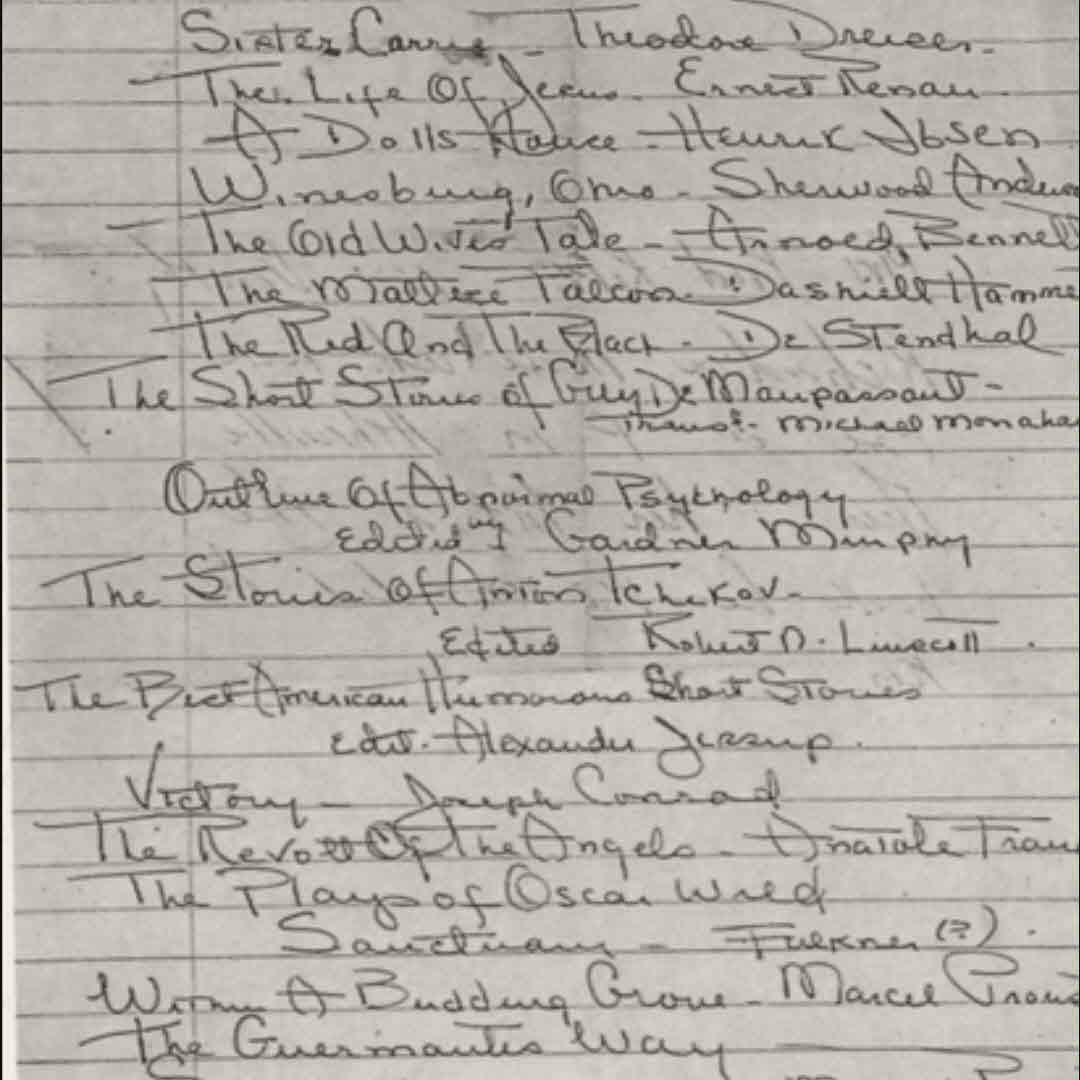 Sister Carrie - Theodore Dreiser.
The Life Of Jesus. Ernest Renan.
A Dolls House - Henrik Ibsen
Winesburg, Ohio - Sherwood Anderso
The Old Wives Tale - Arnold Bennett
The Maltese Falcon. Dashiell Hamme
The Red And The Black - De Stendhal
The Short Stories of Guy De Maupassant -
Transl - Michael Monaha
Outline Of Abnormal Psychology
Edited by Gardner Murphy
The Stories Of Anton Tchekov -
Edited Robert N. Linscott.
The Best American Humorous Short Stories
Edit. Alexander Jessup.
Victory - Joseph Conrad
The Revolt Of The Angels - Anatole Fran
The Plays of Oscar Wild
Sanctuary - Fulkner (?).
Within A Budding Grove - Marcel Prous
The Guermantes Way